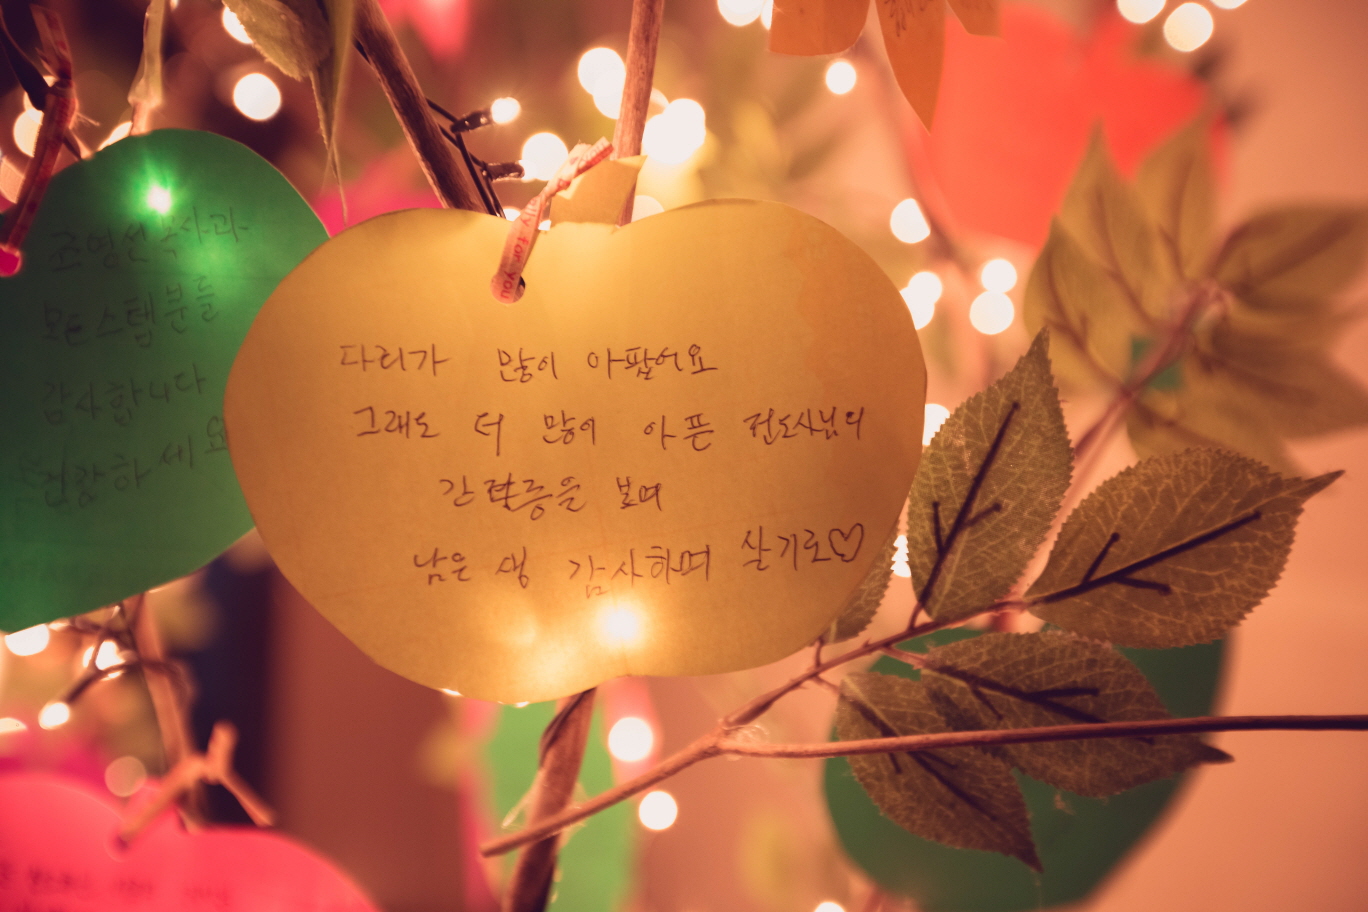 조영선 목사과
모든 스텝분들
감사합니다
건강하세요
for you
다리가 많이 아팠어요
그래도 더 많이 아픈 전도사님의
간절함을 보며
남은 생 감사하며 살기로♡